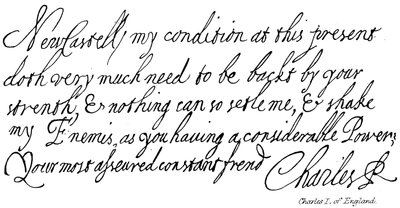 NewCastell, my condition at this present
doth very much need to be backt by your
strenth, & nothing can so setle me, & shake
my Enemis, as you having a considerable Power;
Your most asseured constant frend
Charles R
Charles I. of England.